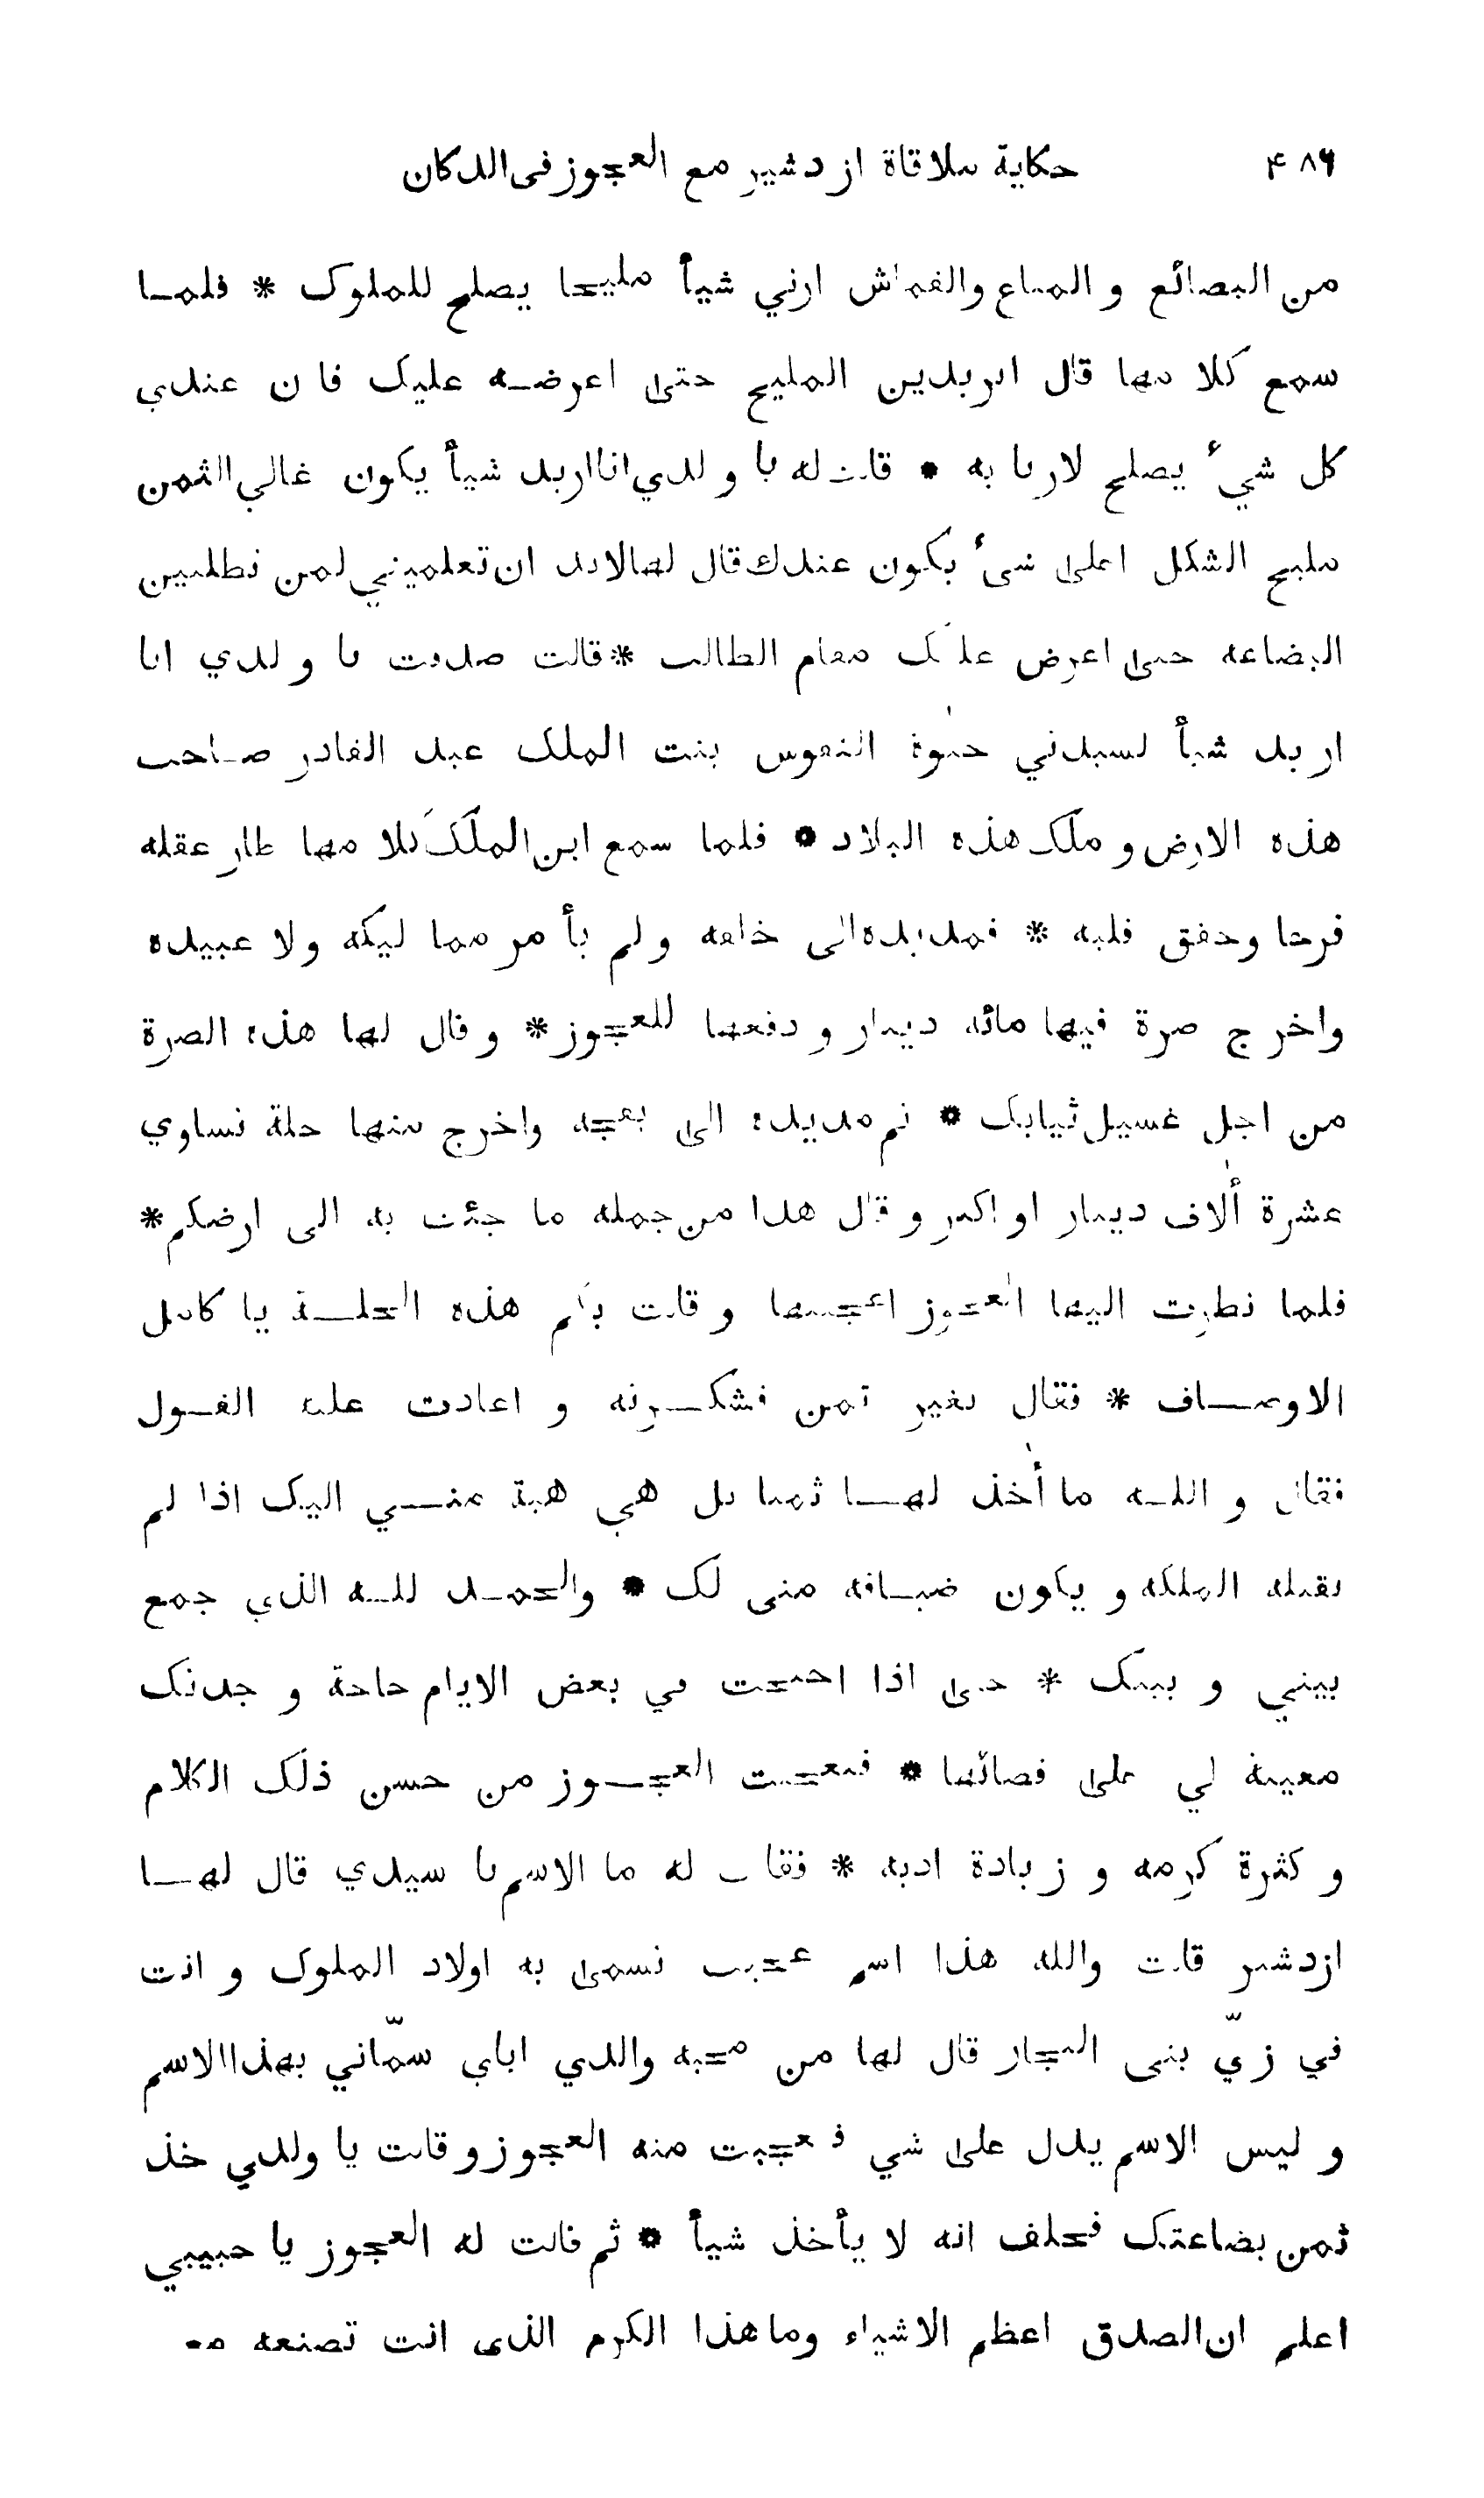 ۴۸۶ حكاية ملاقاة ازدشير مع العجوز فى الدكان
من البضائع و المتاع والقماش ارني شيأ مليحا يصلح للملوك * فلمـا
سمع كلامها قال اتريدين المليح حتى اعرضـه عليك فان عندي
كل شيء يصلح لاربابه * قالت له يا ولدي انا اريد شيأ يكون غالي الثمن
مليح الشكل اعلى شىء يكون عندك قال لها لابد ان تعلميني لمن تطلبين
البضاعة حتى اعرض عليك مقام الطالب * قالت صدقت يا ولدي انا
اريد شيأ لسيدتي حيوة النفوس بنت الملك عبد القادر صـاحب
هذه الارض و ملك هذه البلاد * فلما سمع ابن الملك كلامها طار عقله
فرحا وخفق قلبه * فمد يده الى خلفه ولم يأمر مماليكه ولا عبيده
واخرج صرة فيها مائة دينار و دفعها للعجوز * و قال لها هذه الصرة
من اجل غسيل ثيابك * ثم مد يده الى بقجة واخرج منها حلة تساوي
عشرة ألاف دينار او اكثر و قال هذا من جملة ما جئت به الى ارضكم *
فلما نظرت اليها العجوز اعجبتها و قالت بكم هذه الحلـة يا كامل
الاوصـاف * فقال بغير ثمن فشكـرته و اعادت عليه القـول
فقال و اللـه ما أخذ لهـا ثمنا بل هي هبة منـي اليك اذا لم
تقبله الملكة و يكون ضيـافة منى لك * والحمـد للـه الذي جمع
بيني و بينك * حتى اذا احتجت في بعض الايام حاجة و جدتك
معينة لي على قضائها * فتعجبت العجـوز من حسن ذلك الكلام
و كثرة كرمه و زيادة ادبه * فقالت له ما الاسم يا سيدي قال لهـا
ازدشير قالت والله هذا اسم عجيب تسمى به اولاد الملوك و انت
في زيّ بنى التجار قال لها من محبة والدي اياي سمّاني بهذا الاسم
و ليس الاسم يدل على شي فتعجبت منه العجوز و قالت يا ولدي خذ
ثمن بضاعتك فحلف انه لا يأخذ شيأ * ثم قالت له العجوز يا حبيبي
اعلم ان الصدق اعظم الاشياء وما هذا الكرم الذى انت تصنعه مع